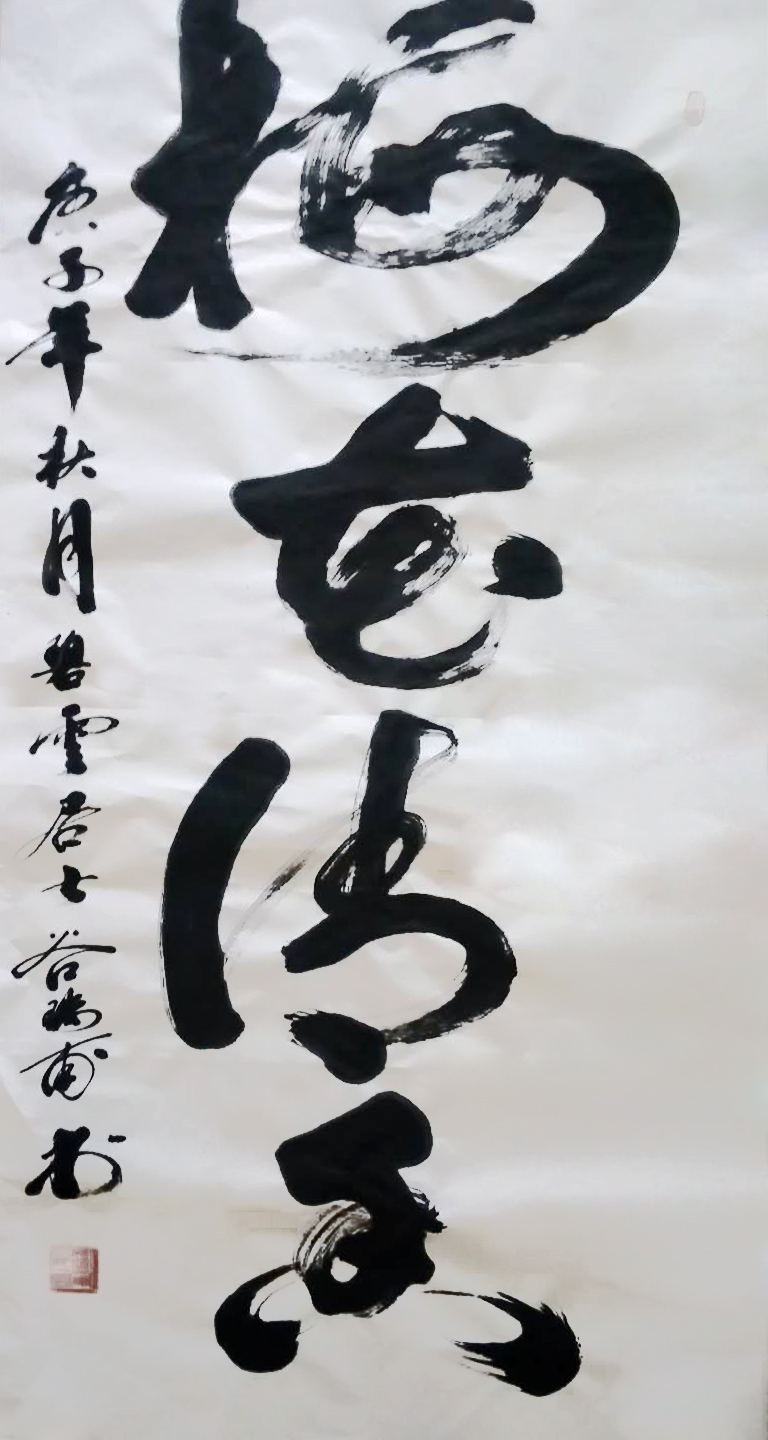 梅花清香
庚子年秋月碧雲居士谷瑞甫書